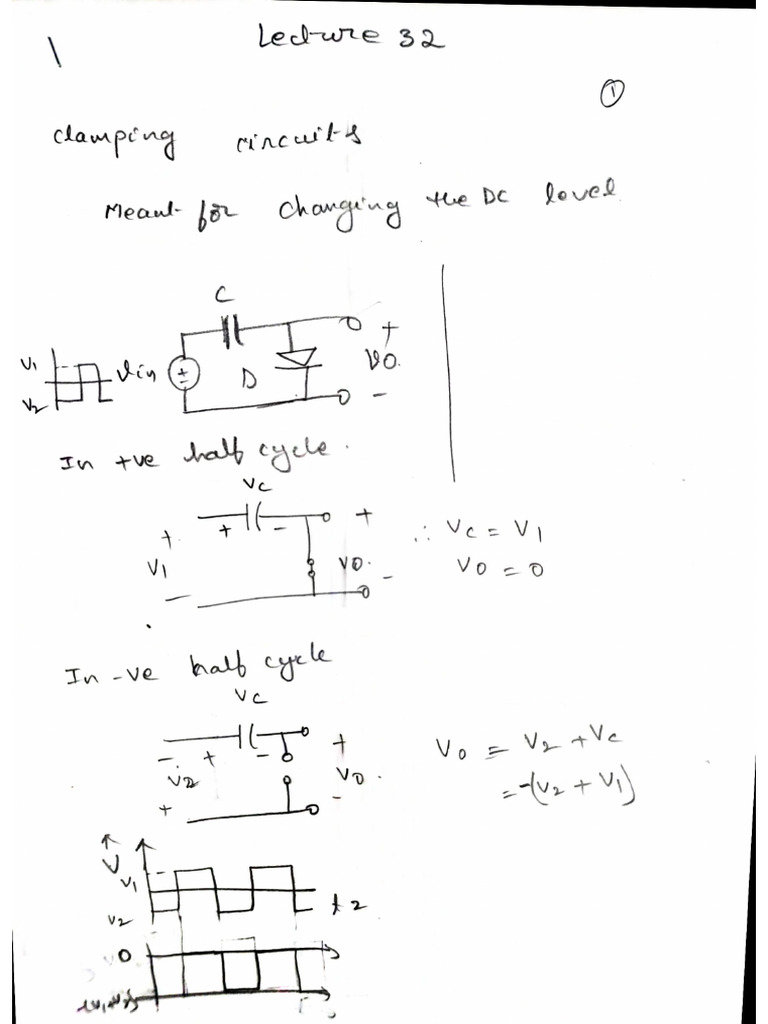 Lecture 32
1
①
clamping circuits
Meant for changing the DC level
C
V1
V2
Vin
+
-
D
+
VO.
-
In +ve half cycle.
VC
+ - +
+
V1
VO.
-
-
∴ VC = V1
VO = 0
In -ve half cycle
VC
- + - +
V2
VO.
+
-
VO = V2 + VC
= -(V2 + V1)
V
V1
V2
t
0